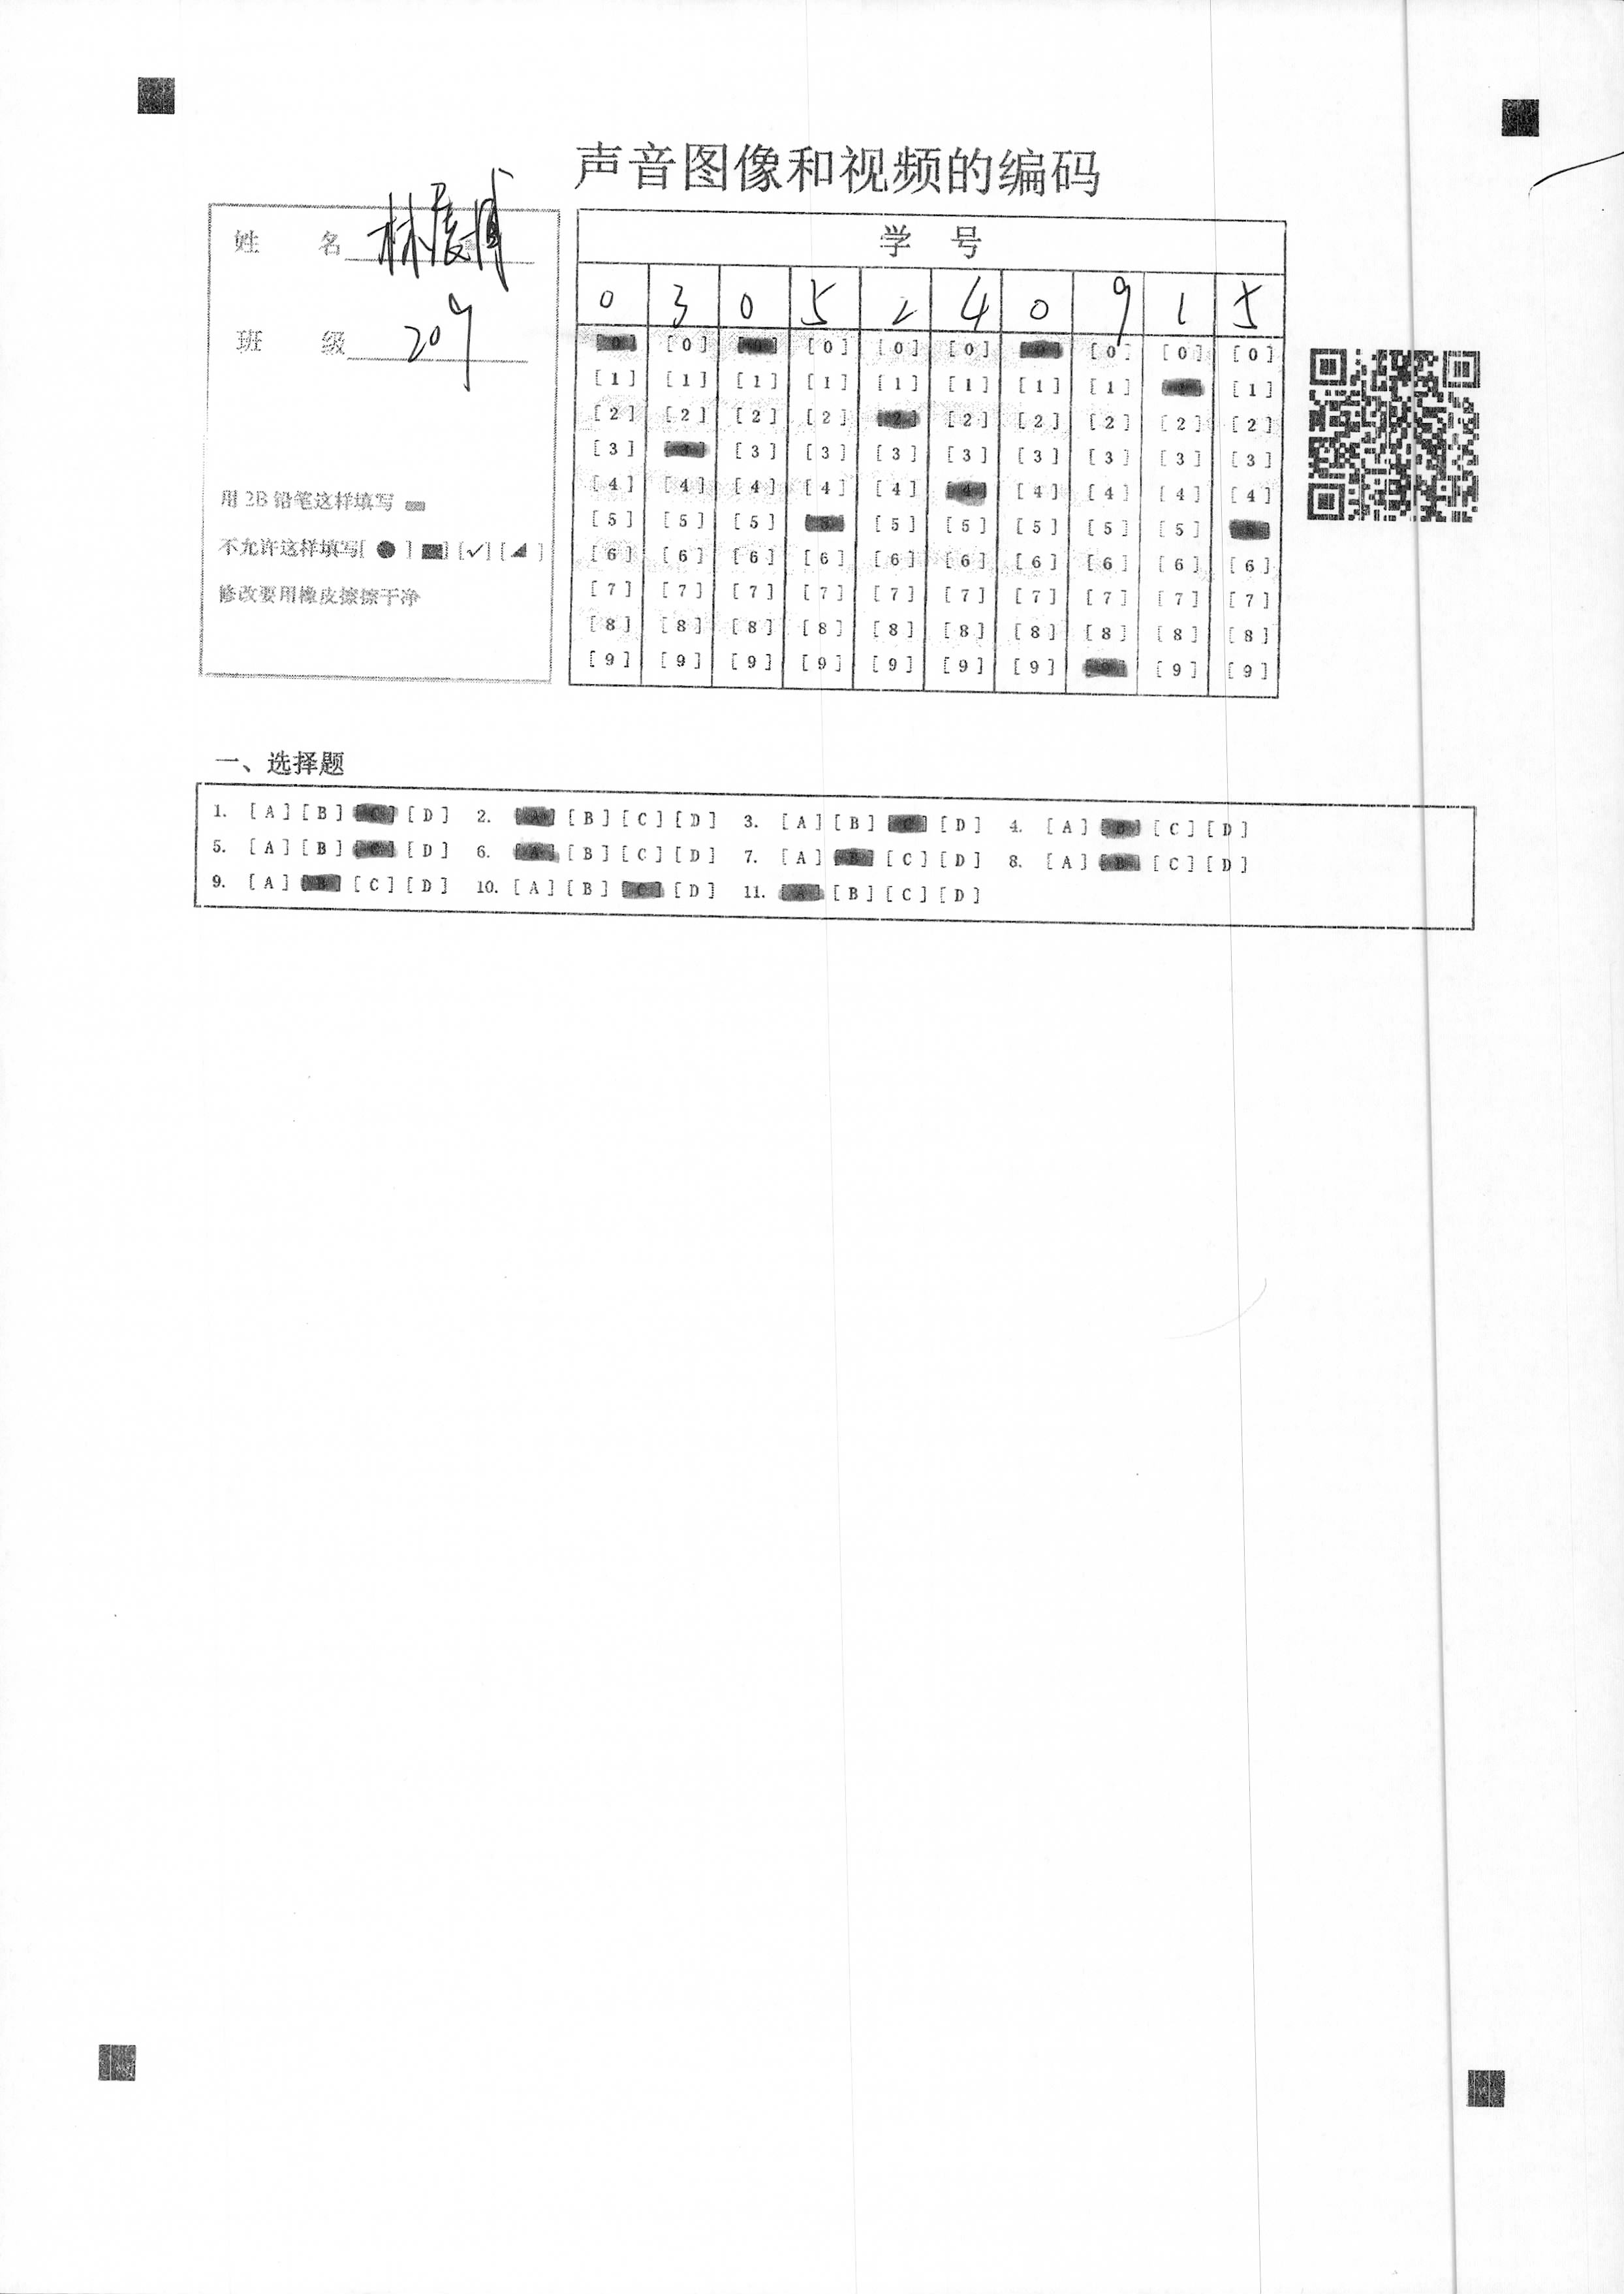 声音图像和视频的编码
姓 名 林晨博
班 级 209
用 2B 铅笔这样填写
不允许这样填写[ ● ] [■] [✓] [◢ ]
修改要用橡皮擦擦干净
学 号
0 3 0 5 2 4 0 9 1 5
[0] [0] [0] [0] [0] [0] [0] [0] [0] [0]
[1] [1] [1] [1] [1] [1] [1] [1] [1] [1]
[2] [2] [2] [2] [2] [2] [2] [2] [2] [2]
[3] [3] [3] [3] [3] [3] [3] [3] [3]
[4] [4] [4] [4] [4] [4] [4] [4] [4] [4]
[5] [5] [5] [5] [5] [5] [5] [5] [5]
[6] [6] [6] [6] [6] [6] [6] [6] [6] [6]
[7] [7] [7] [7] [7] [7] [7] [7] [7] [7]
[8] [8] [8] [8] [8] [8] [8] [8] [8] [8]
[9] [9] [9] [9] [9] [9] [9] [9] [9]
一、选择题
1. [A] [B] [C] [D] 2. [A] [B] [C] [D] 3. [A] [B] [C] [D] 4. [A] [B] [C] [D]
5. [A] [B] [C] [D] 6. [A] [B] [C] [D] 7. [A] [B] [C] [D] 8. [A] [B] [C] [D]
9. [A] [B] [C] [D] 10. [A] [B] [C] [D] 11. [A] [B] [C] [D]